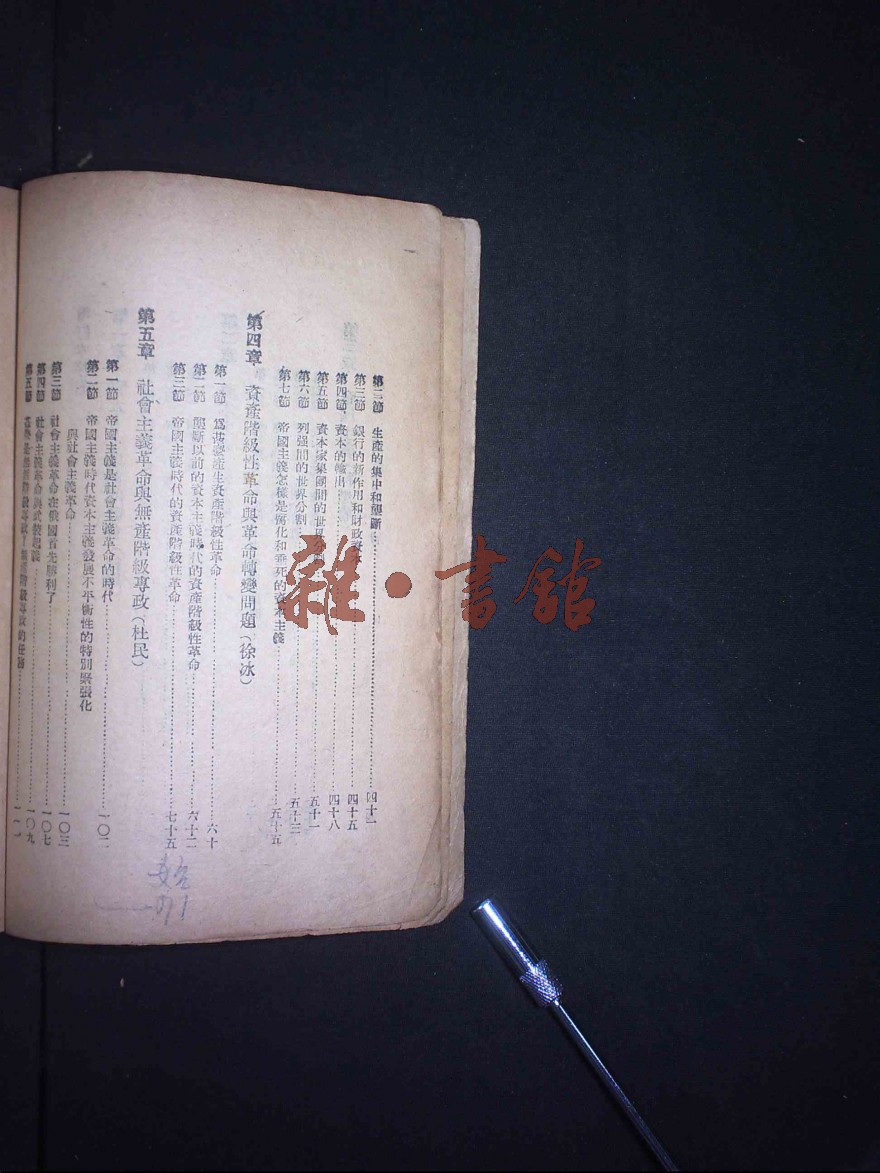 第二節 生產的集中和壟斷 四十二
第三節 銀行的新作用和財政資本 四十五
第四節 資本的輸出 四十八
第五節 資本家集團間的世界分割 五十一
第六節 列强間的世界分割 五十三
第七節 帝國主義怎樣是腐化和垂死的資本主義 五十五
第四章 資產階級性革命與革命轉變問題(徐冰)
第一節 爲甚麽產生資產階級性革命 六十
第二節 壟斷以前的資本主義時代的資產階級性革命 六十二
第三節 帝國主義時代的資產階級性革命 七十五
第五章 社會主義革命與無產階級專政(杜民)
第一節 帝國主義是社會主義革命的時代 一〇二
第二節 帝國主義時代資本主義發展不平衡性的特別緊張化
與社會主義革命 一〇三
第三節 社會主義革命在俄國首先勝利了 一〇七
第四節 社會主義革命與武裝起義 一〇九
第五節 無產階級專政的任務
雜·書館